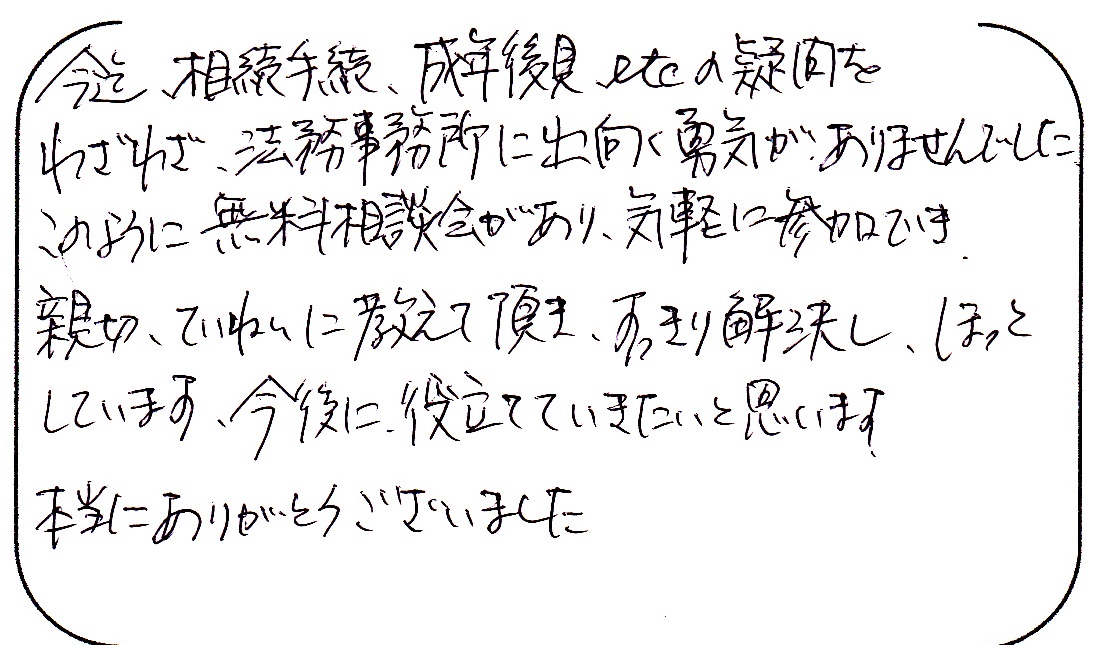 今迄、相続手続、成年後見、etcの疑問を
わざわざ、法務事務所に出向く勇気がありませんでした
このように無料相談会があり、気軽に参加でき
親切、ていねいに教えて頂き、すっきり解決し、ほっと
しています、今後に役立てていきたいと思います
本当にありがとうございました